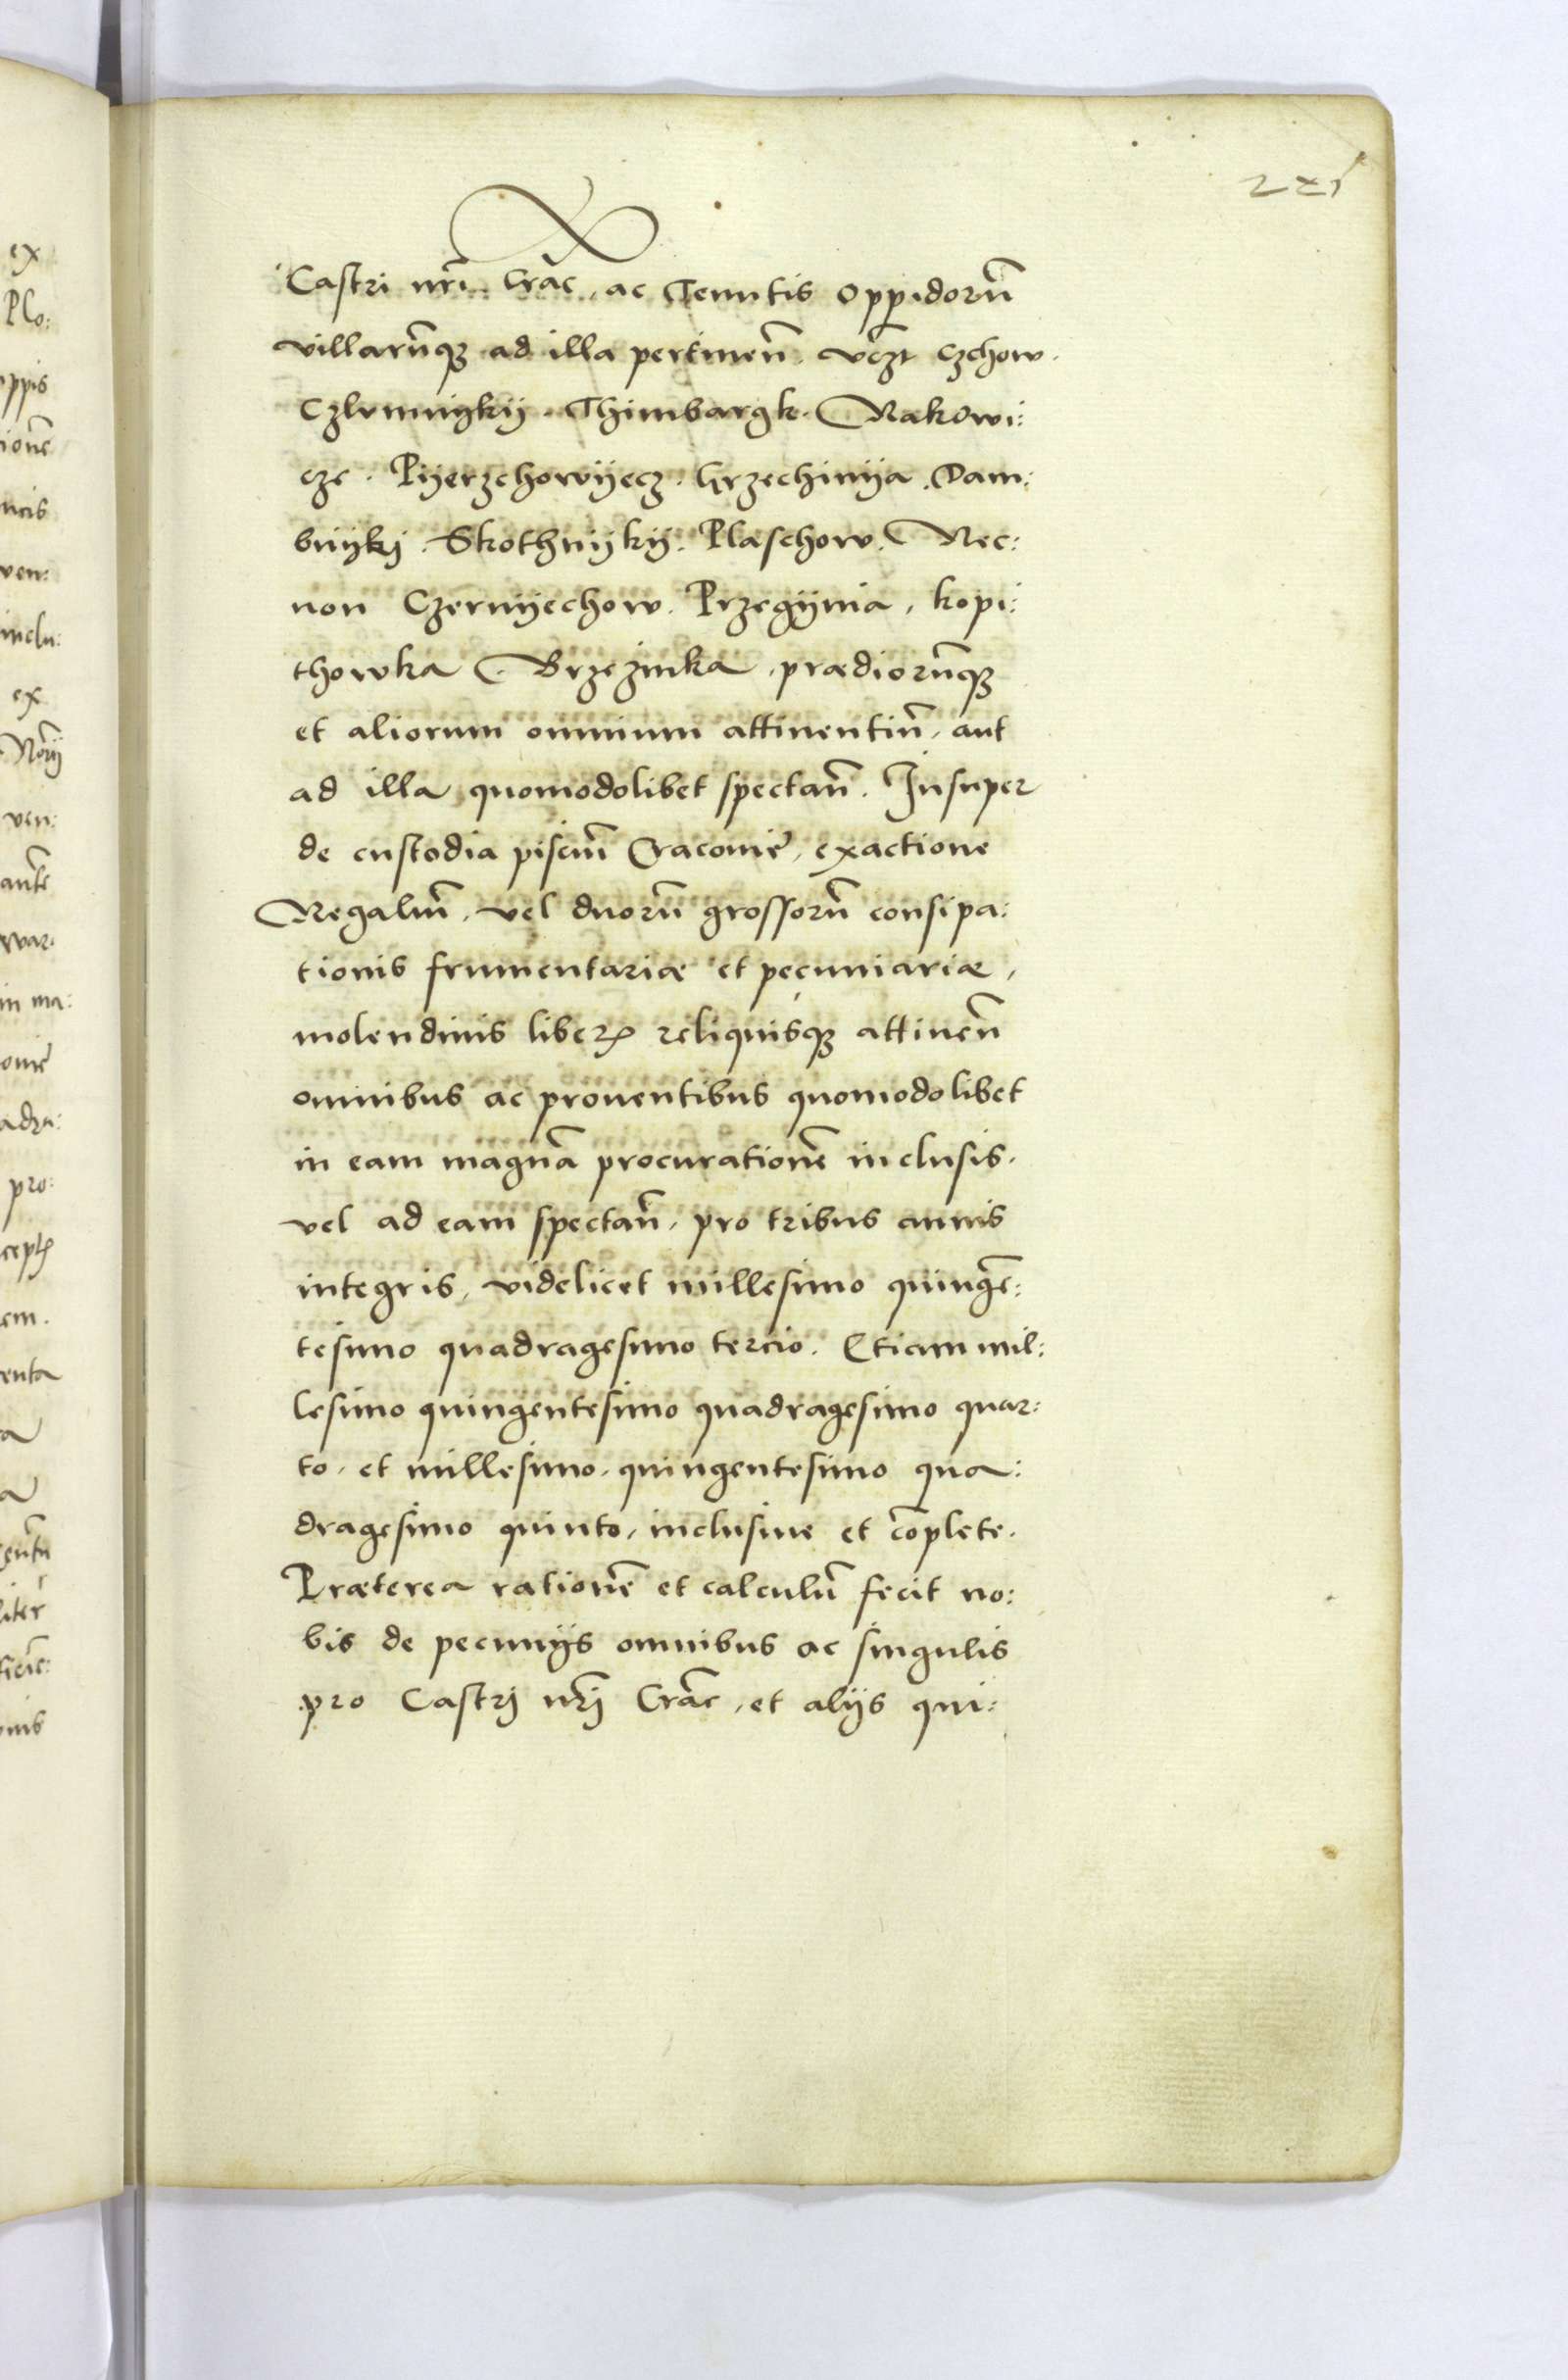 221
Castri nr̃i Crac̃, ac Tenutis Oppidorũ
villarũqꝫ ad illa pertineñ. vczt Czchow.
Thimbargk. Rakowi:
cze. Pyerzchowyecz. Grzechinya. Dam:
bnyky. Skothnyky. Plaschow. Nec:
non Czernyechow. Przegynia, kopi:
thowka. Brzezinka, prædiorũqꝫ
et aliorum omnium attinentiũ, aut
ad illa quomodolibet spectañ. Insuper
de custodia pisciũ Cracoviẽ, exactione
Regaliũ, vel duorũ grossorũ consipa:
tionis frumentariæ et pecuniariæ,
molendinis reliquisqꝫ attineñ
omnibus ac proventibus quomodolibet
in eam magnã procurationẽ inclusis.
vel ad eam spectañ, pro tribus annis
integris, videlicet millesimo quingẽ:
tesimo quadragesimo tercio. Etiam mil:
lesimo quingentesimo quadragesimo quar:
to, et millesimo, quingentesimo qua:
dragesimo quinto, inclusive et cõplete.
Præterea rationẽ et calculũ fecit no:
bis de pecunijs omnibus ac singulis
pro Castrj nr̃j Crac̃, et alijs qui:
ex
Plo:
oppis
ionẽ
ncis
ven:
inclu:
ex
ven:
antẽ
war:
in ma:
pro:
em.
enta
nis